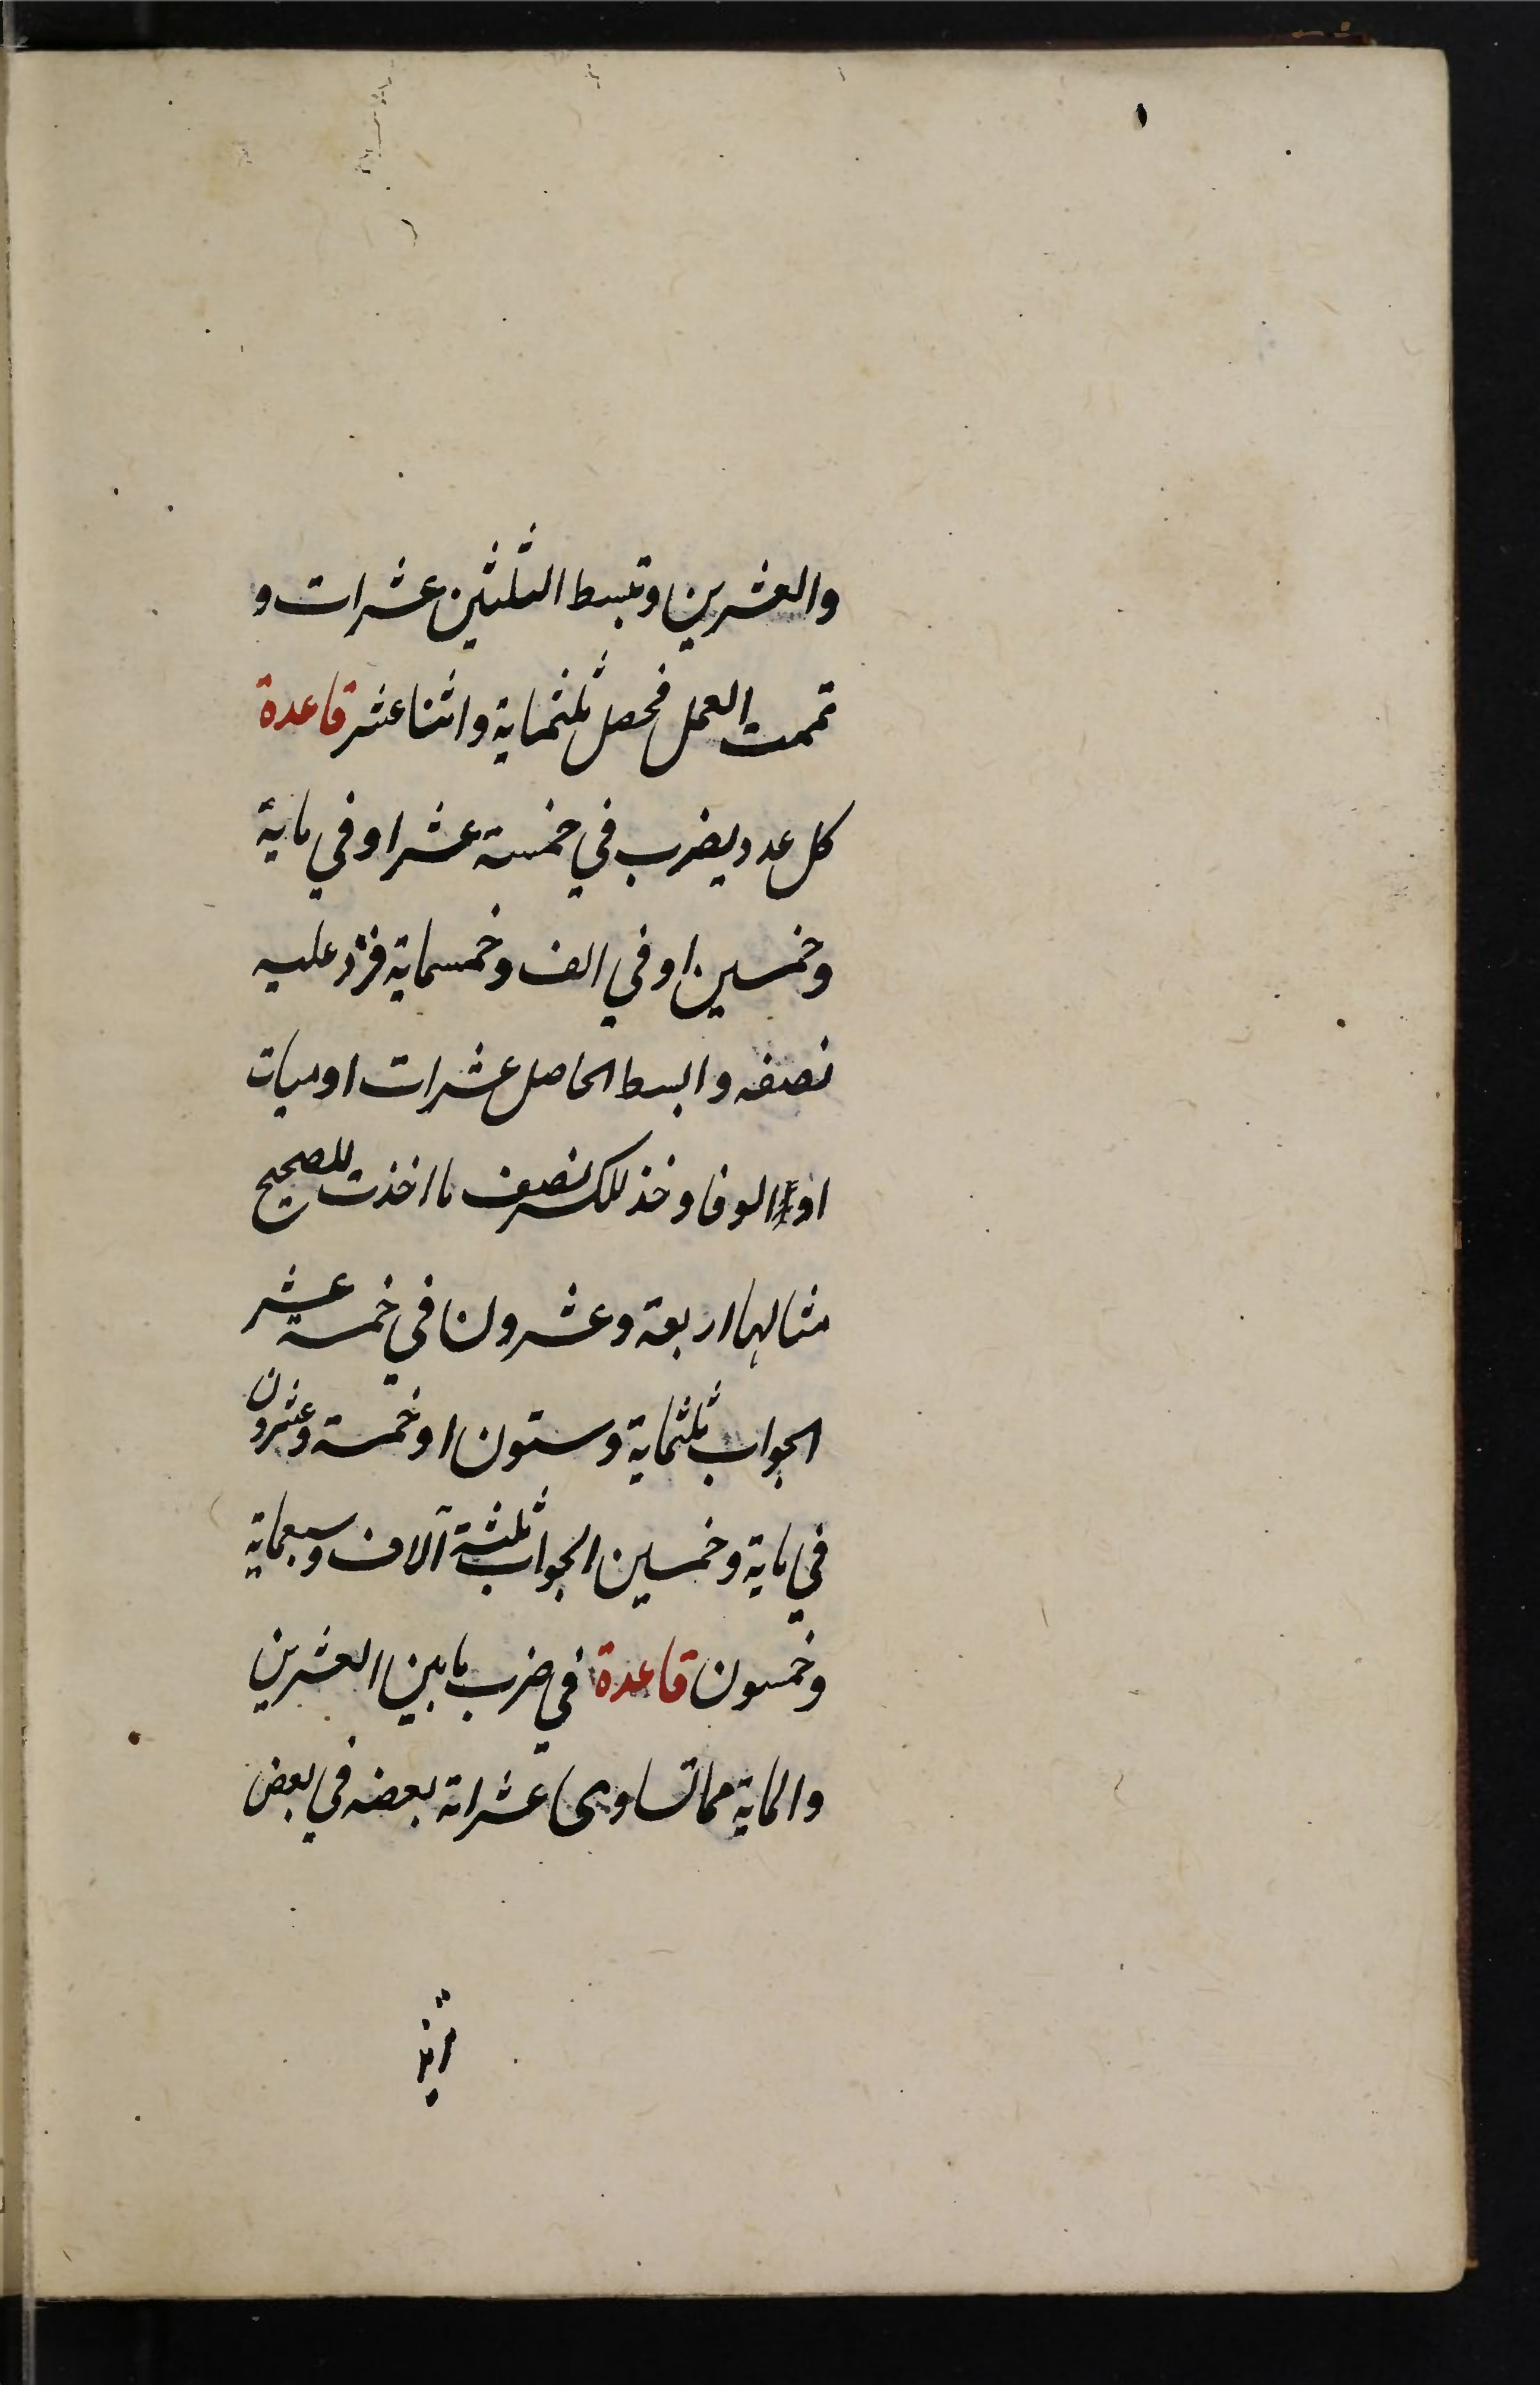 والعشرين وتبسط الثلثين عشرات و
تممت العمل فحصل ثلثماية واثنا عشر قاعدة
كل عدد يضرب في خمسة عشر او في ماية
وخمسين او في الف وخمسماية فزد عليه
نصفه وابسط الحاصل عشرات او ميات
او الوفا وخذ للكسر نصف ما اخذت للصحيح
مثالها اربعة وعشرون في خمسة عشر
الجواب ثلثماية وستون او خمسة وعشرون
في ماية وخمسين الجواب ثلثة آلاف وسبعماية
وخمسون قاعدة في ضرب ما بين العشرين
والماية مما تساوى عشراته بعضه في بعض